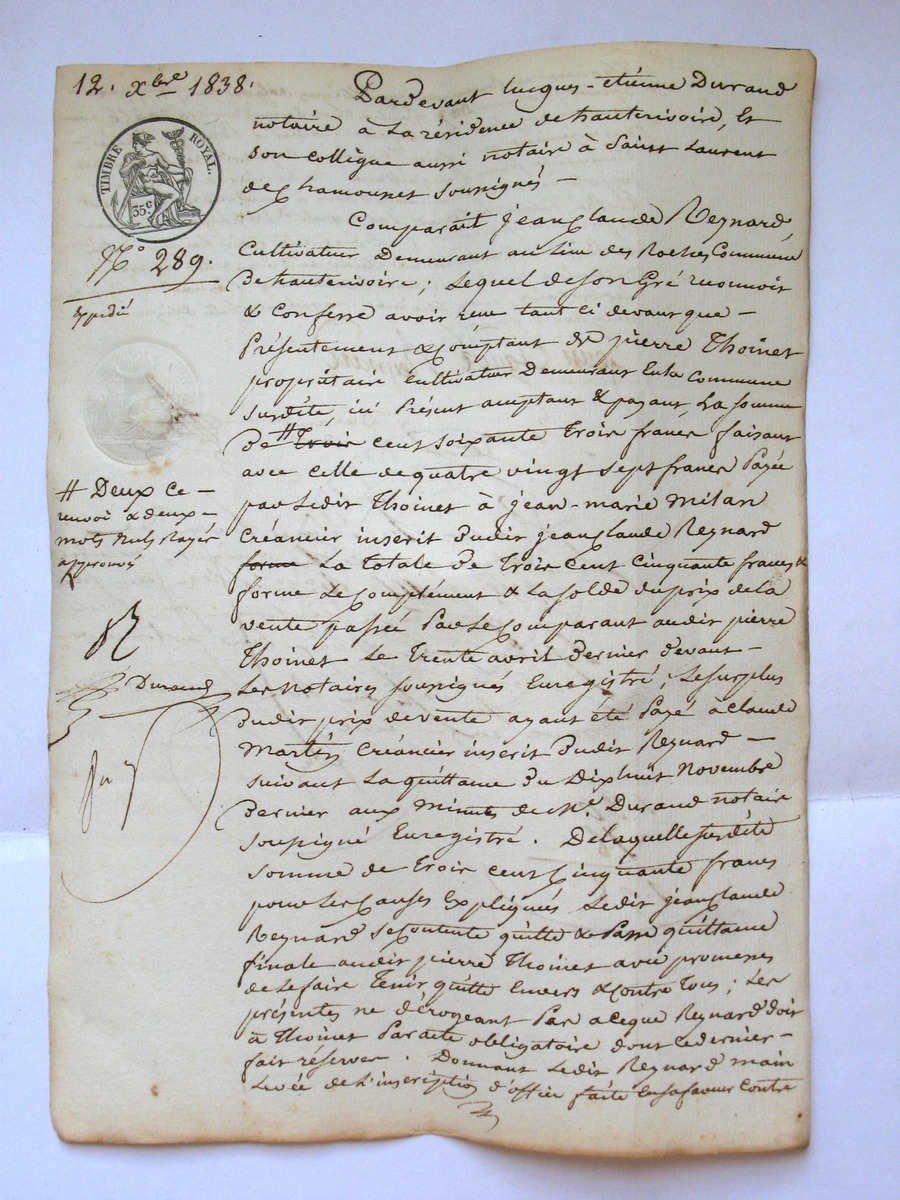 12. xbre 1838.
TIMBRE ROYAL.
35c
No 289.
Expédié
# Deux Ce
renvoi & deux
mots nuls rayés
approuvés
Durand
Pardevant Jacques-étienne Durand
notaire à La résidence de hauterivoire, Et
son collègue aussi notaire à Saint Laurent
de Chamousset soussignés —
Comparaît jean Claude Reynard,
Cultivateur Demeurant au Lieu des Roches Commune
De hauterivoire ; Lequel de son Gré reconnoit
& Confesse avoir reçu tant ci devant que —
Présentement & Comptant De pierre Thoinet
propriétaire Cultivateur Demeurant En la Commune
susdite, ici Présent acceptant & payant, La somme
De # Trois cent soixante Trois francs faisant
avec celle de quatre vingt sept francs Payée
par Ledit Thoinet à jean-marie Milan
Créancier inscrit Dudit jean Claude Reynard
forme La totale De Trois Cent Cinquante francs &
forme Le Complément & La solde du prix de la
vente passée Par Le Comparant audit pierre
Thoinet Le Trente avril Dernier Devant —
Les Notaires soussignés Enregistré ; Le surplus
Dudit prix de vente ayant été Payé à Claude
Martin Créancier inscrit Dudit Reynard —
suivant La quittance Du Dix huit Novembre
Dernier aux Minutes de Me. Durand notaire
soussigné Enregistré. De laquelle susdite
somme de Trois cent Cinquante francs
pour Les Causes Expliquées Ledit jean Claude
Reynard se Contente quitte & Passe quittance
finale audit pierre Thoinet avec promesses
de Le faire Tenir quitte Envers & Contre Tous ; Les
présentes ne Dérogeant Par à ce que Reynard Doit
à Thoinet Par acte obligatoire dont Ce dernier —
fait réserves. Donnant Ledit Reynard main
Levée de L'inscription d'office faite En sa faveur Contre